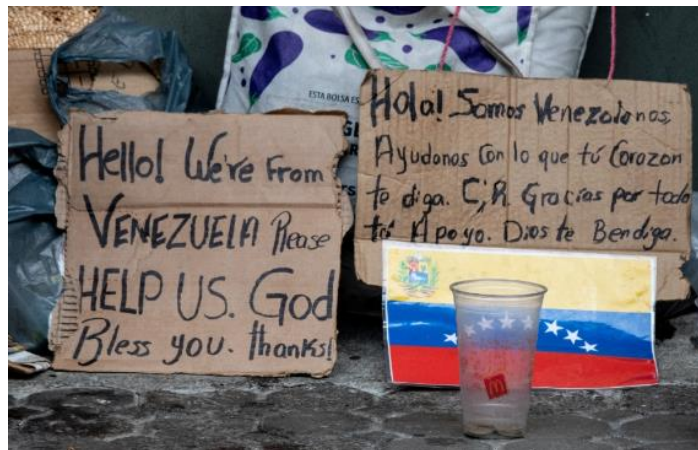 Hello! We're From
VENEZUELA Please
HELP US. God
Bless you. thanks!
ESTA BOLSA ES
Hola! Somos Venezolanos,
Ayudanos Con lo que tú Corazon
te diga. C,R Gracias por todo
tú Apoyo. Dios te Bendiga.